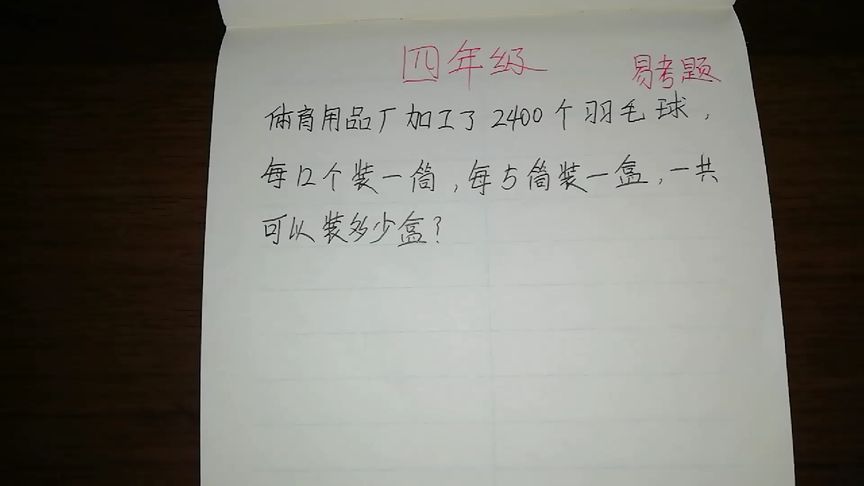 四年级 易考题
体育用品厂加工了2400个羽毛球，
每12个装一筒，每5筒装一盒，一共
可以装多少盒？